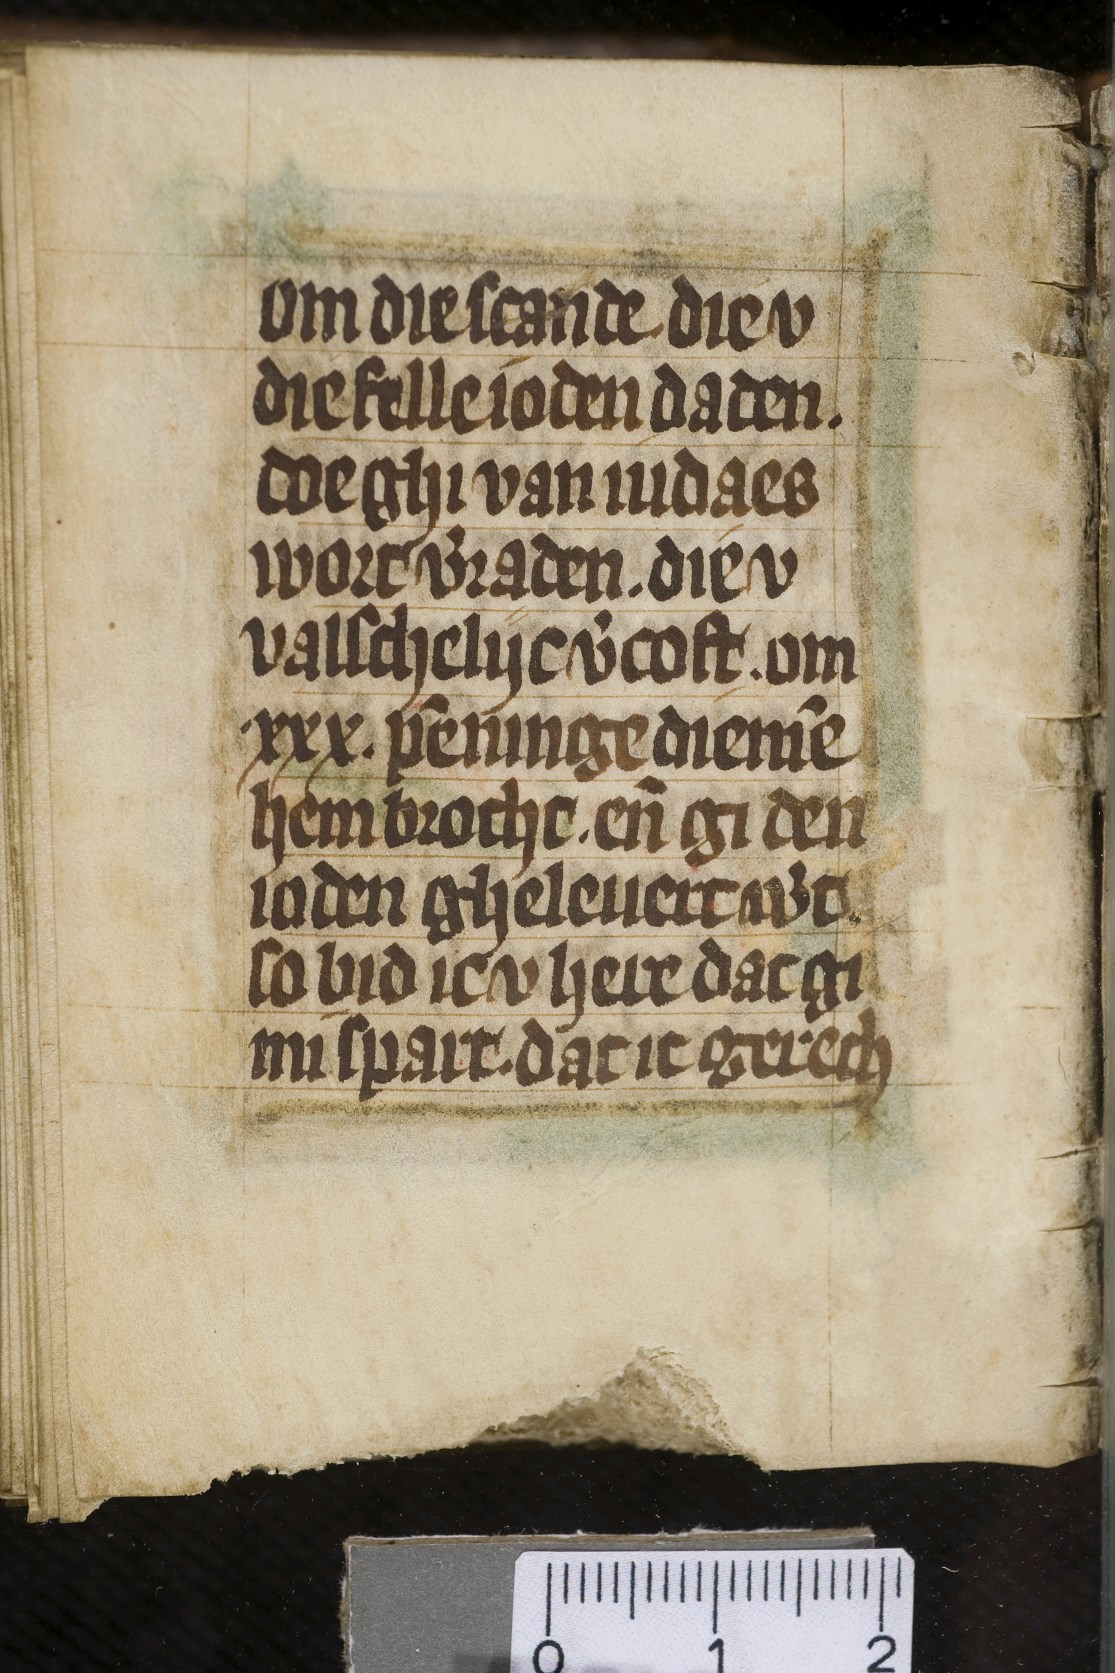 om die scande die v
die felle ioden daden.
doe ghi van iudaes
wort v̾raden. die v
valschelijc v̾coft. om
xxx. pēninge diemē
hem brocht. en̄ gi den
ioden gheleuert w̾t.
so bid ic v here dat gi
mi spart. dat ic gerech
0 1 2